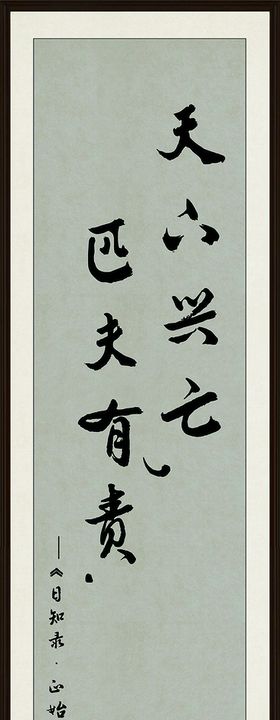 天下兴亡
匹夫有责.
——《日知录·正始